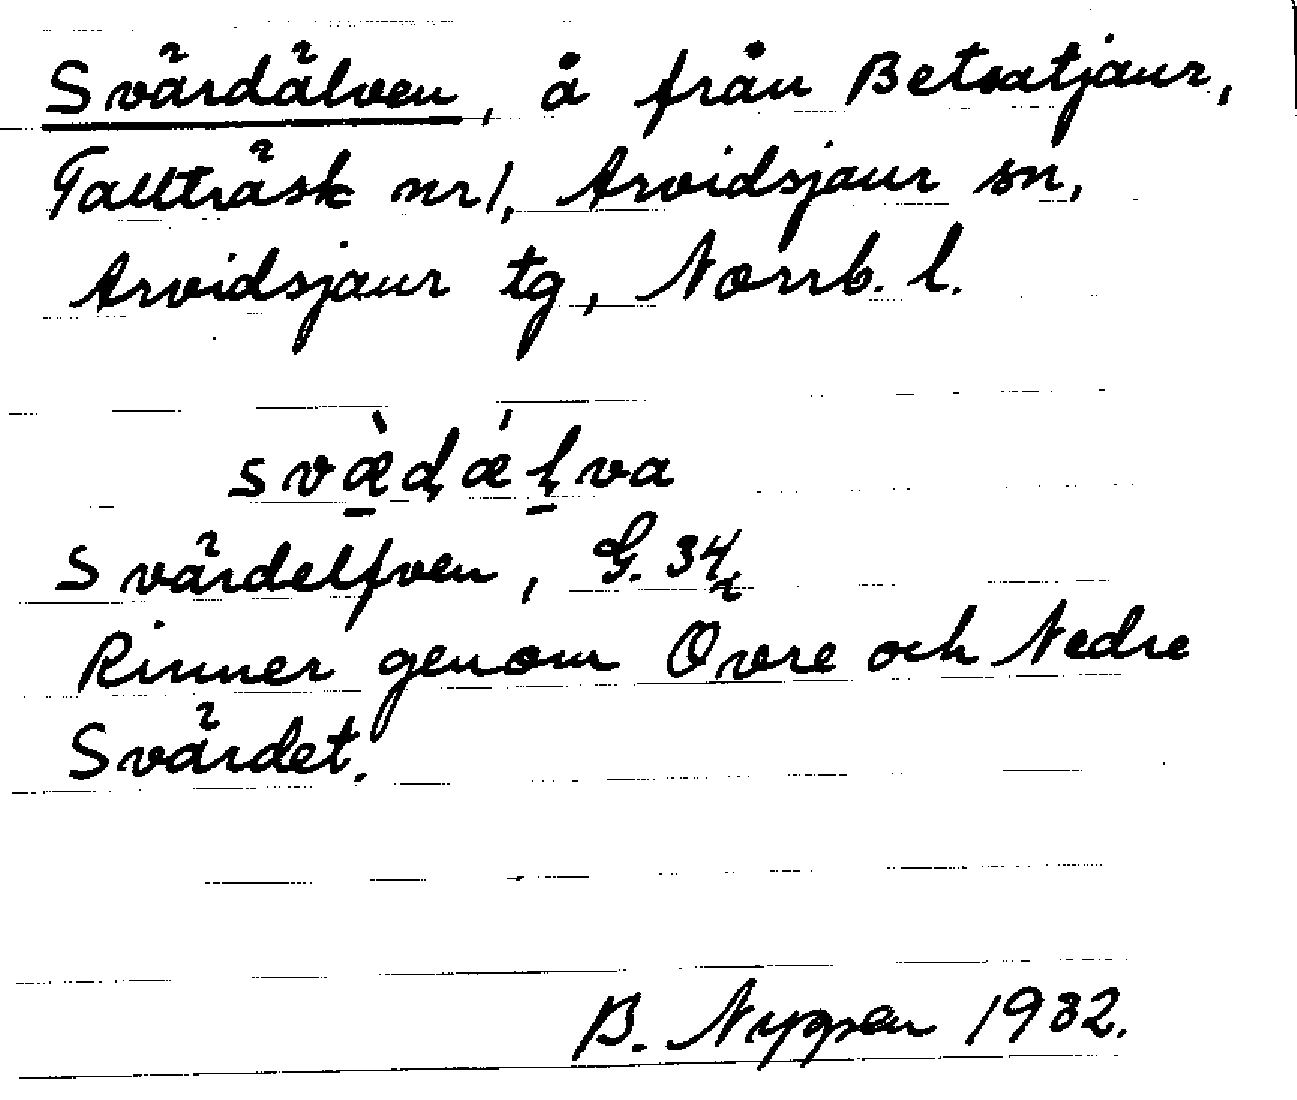 Svärdälven, å från Betsatjaur,
Tallträsk nr 1, Arvidsjaur sn,
Arvidsjaur tg, Norrb. l.
svæ̱̀ḍǽḷ̱va
Svärdelfven, G. 34
Rinner genom Övre och Nedre
Svärdet.
B. Nygren 1932.